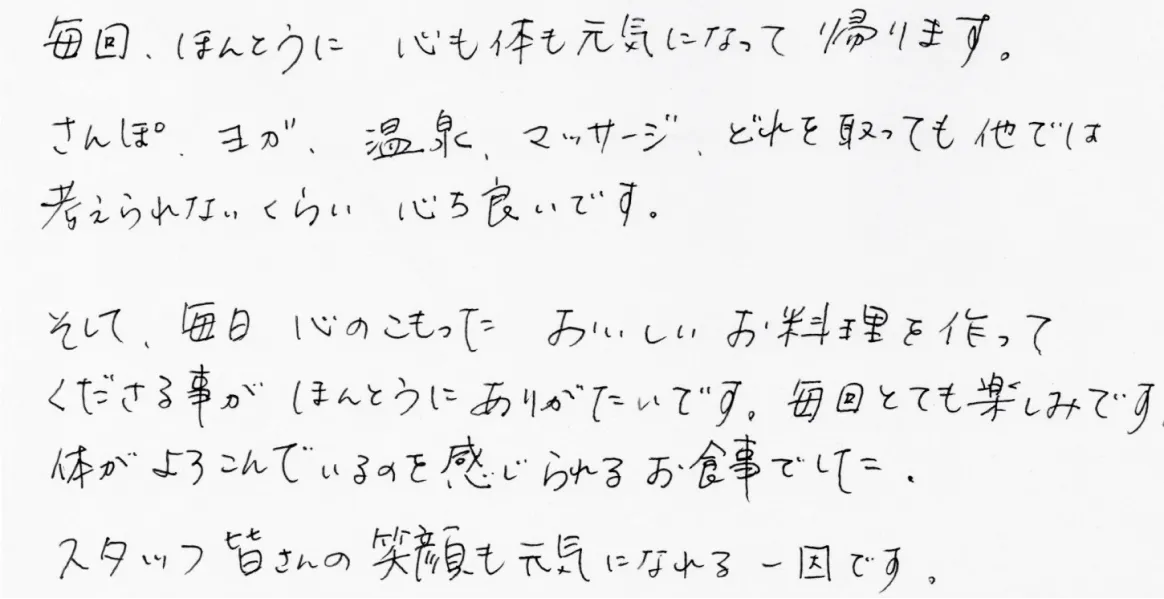 毎回、ほんとうに 心も体も元気になって帰ります。
さんぽ、ヨガ、温泉、マッサージ、どれを取っても他では
考えられないくらい 心ち良いです。
そして、毎日 心のこもった おいしいお料理を作って
くださる事が ほんとうにありがたいです。毎回とても楽しみです。
体がよろこんでいるのを感じられるお食事でした。
スタッフ皆さんの笑顔も元気になれる一因です。